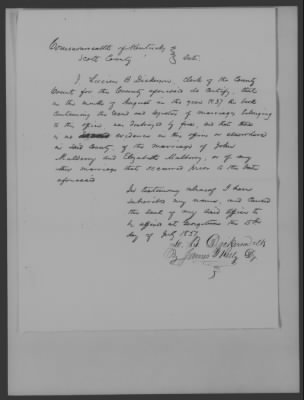 Commonwealth of Kentucky }
Scott County } Sct.
I, Lucien B Dickerson, clerk of the County
Court for the County aforesaid do certify, that
in the month of August in the year 1837 the book
containing the
to the office was destroyed by fire, and that there
is no evidence in the office or elsewhere
in said County of the marriage of John
and Elizabeth or of any
other marriage that occurred prior to the date
aforesaid
In testimony whereof I have
subscribed my name, and caused
the seal of my said office to
be affixed at Georgetown the 15th
day of July 1857
B Dickerson clk
By James Kelly Dy